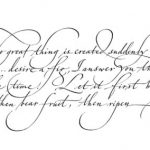 great thing is created suddenly
... desire a fig, I answer you
time! Let it first
bear fruit, then ripen